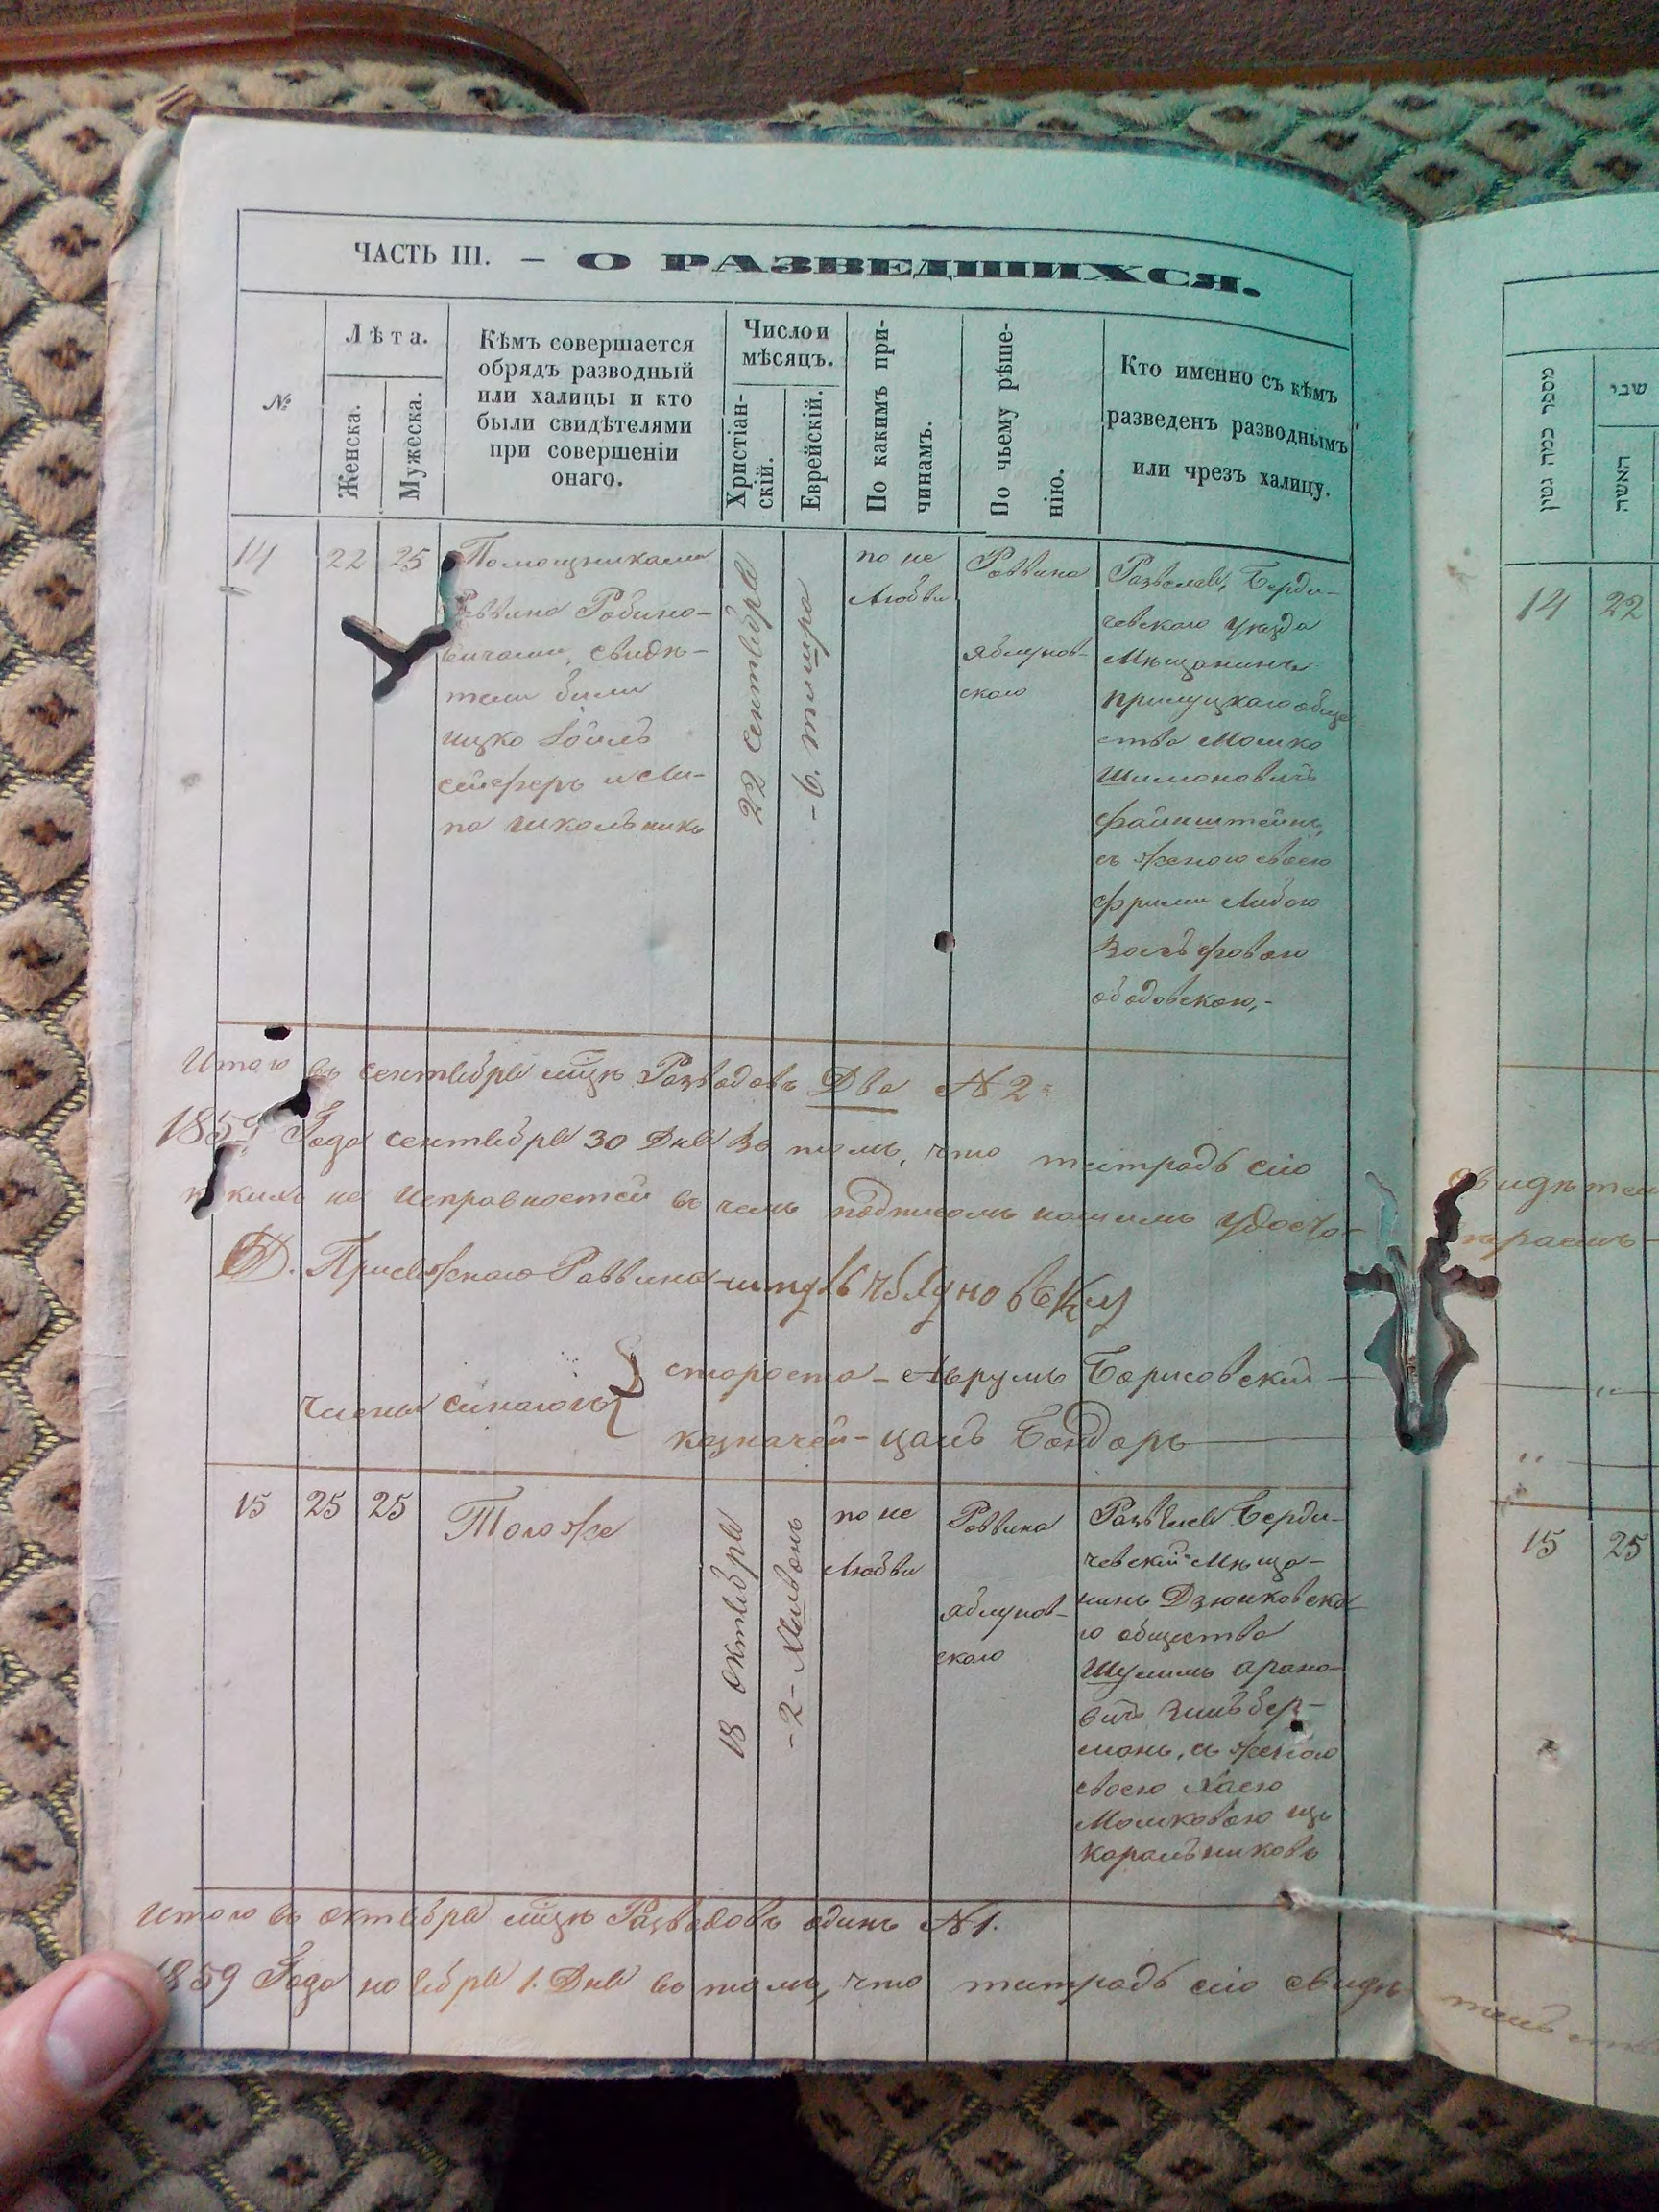 ЧАСТЬ III. — О РАЗВЕДШИХСЯ.
№
Лѣта.
Женска.
Мужеска.
Кѣмъ совершается
обрядъ разводный
или халицы и кто
были свидѣтелями
при совершеніи
онаго.
Число и
мѣсяцъ.
Христіан-
скій.
Еврейскій.
По какимъ при-
чинамъ.
По чьему рѣше-
нію.
Кто именно съ кѣмъ
разведенъ разводнымъ
или чрезъ халицу.
14
22
25
Помощниками
Раввина Рабино-
вичами, свидѣ-
тели были
ицко Іойлъ
сейферъ и
па школьникъ
22 сентября
- 6. тишра
по не
любви
Раввина
яблунов-
скаго
Развелся, Берди-
чевскаго уѣзда
Мѣщанинъ
прилуцкаго обще
ства Мошко
Шимоновичъ
файнштейнъ,
съ женою своею
фрими Либою
Вольфовою
ободовскою,-
Итого въ сентябрѣ мцѣ Разводовъ Два № 2
1859 Года сентября 30 Дня въ томъ, что тетрадь сію
не исправностей въ чемъ подписомъ нашимъ удосто-
Д. Присяжнаго Раввина
члены синагоги
староста - Аврумъ Борисовскій
казначей - Бондарь
15
25
25
Тогоже
18 октября
- 2 - Хешвонъ
по не
любви
Раввина
яблунов-
скаго
Развелся Берди-
чевскій Мѣща-
нинъ Дзюнковска
го общества
Шулимъ арано-
вичъ Зильбер-
манъ, съ женою
своею Хаею
Мошковою изъ
Каральниковъ
Итого въ октябрѣ мцѣ Разводовъ одинъ № 1.
1859 Года ноября 1. Дня въ томъ, что тетрадь сію свидѣ
מספר כמה גטין
שני
האשה
14
22
15
25